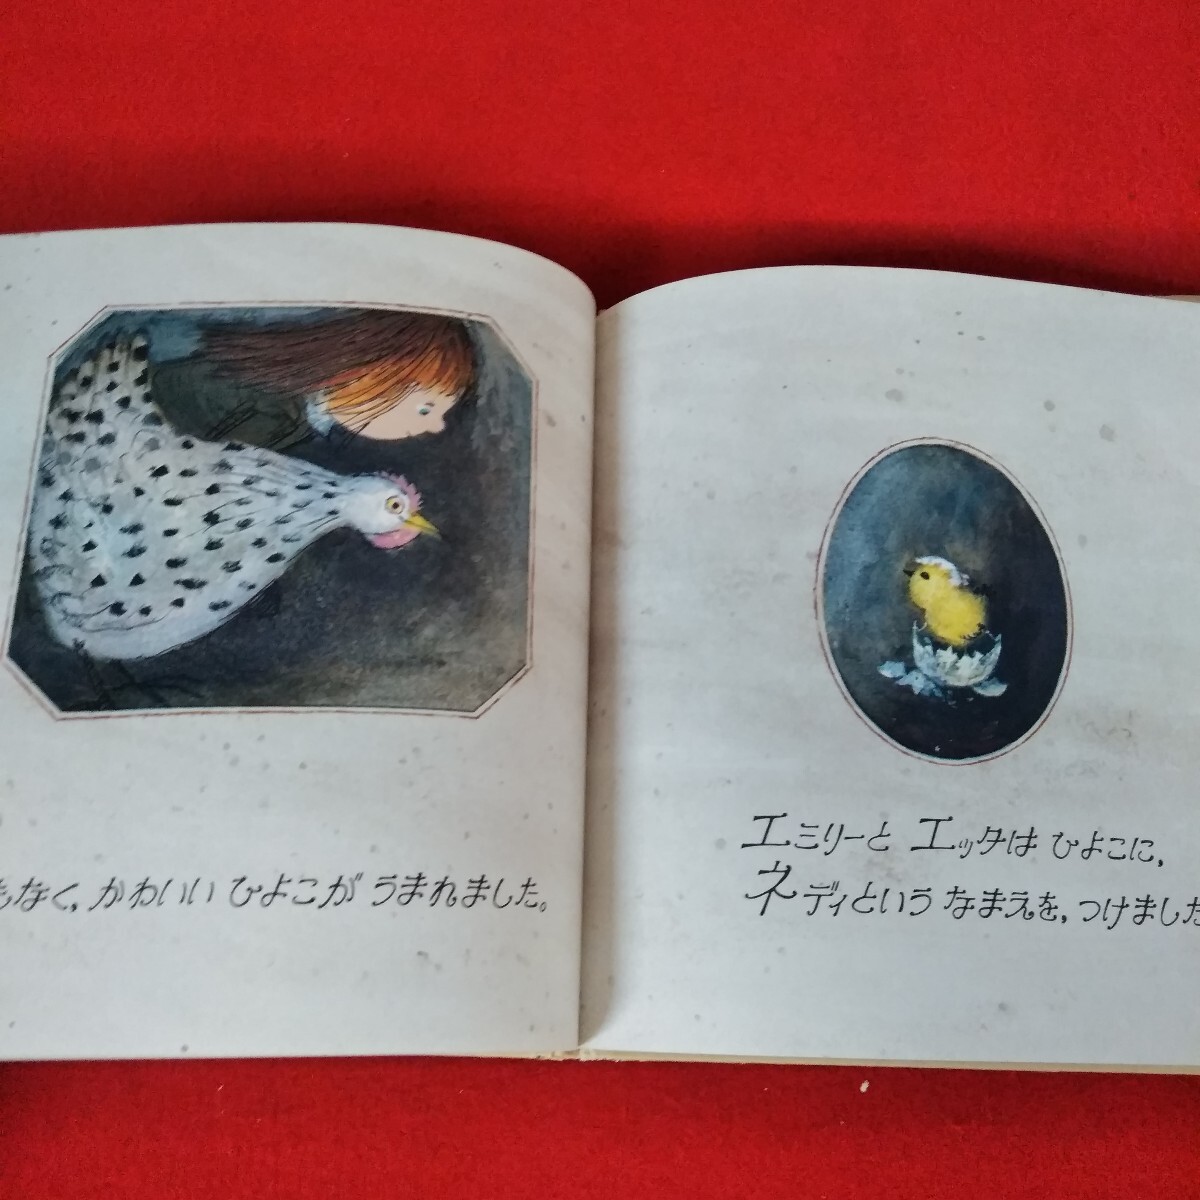 もなく、かわいい ひよこが うまれました。
エミリーと エッタは ひよこに、
ネディという なまえを、つけました